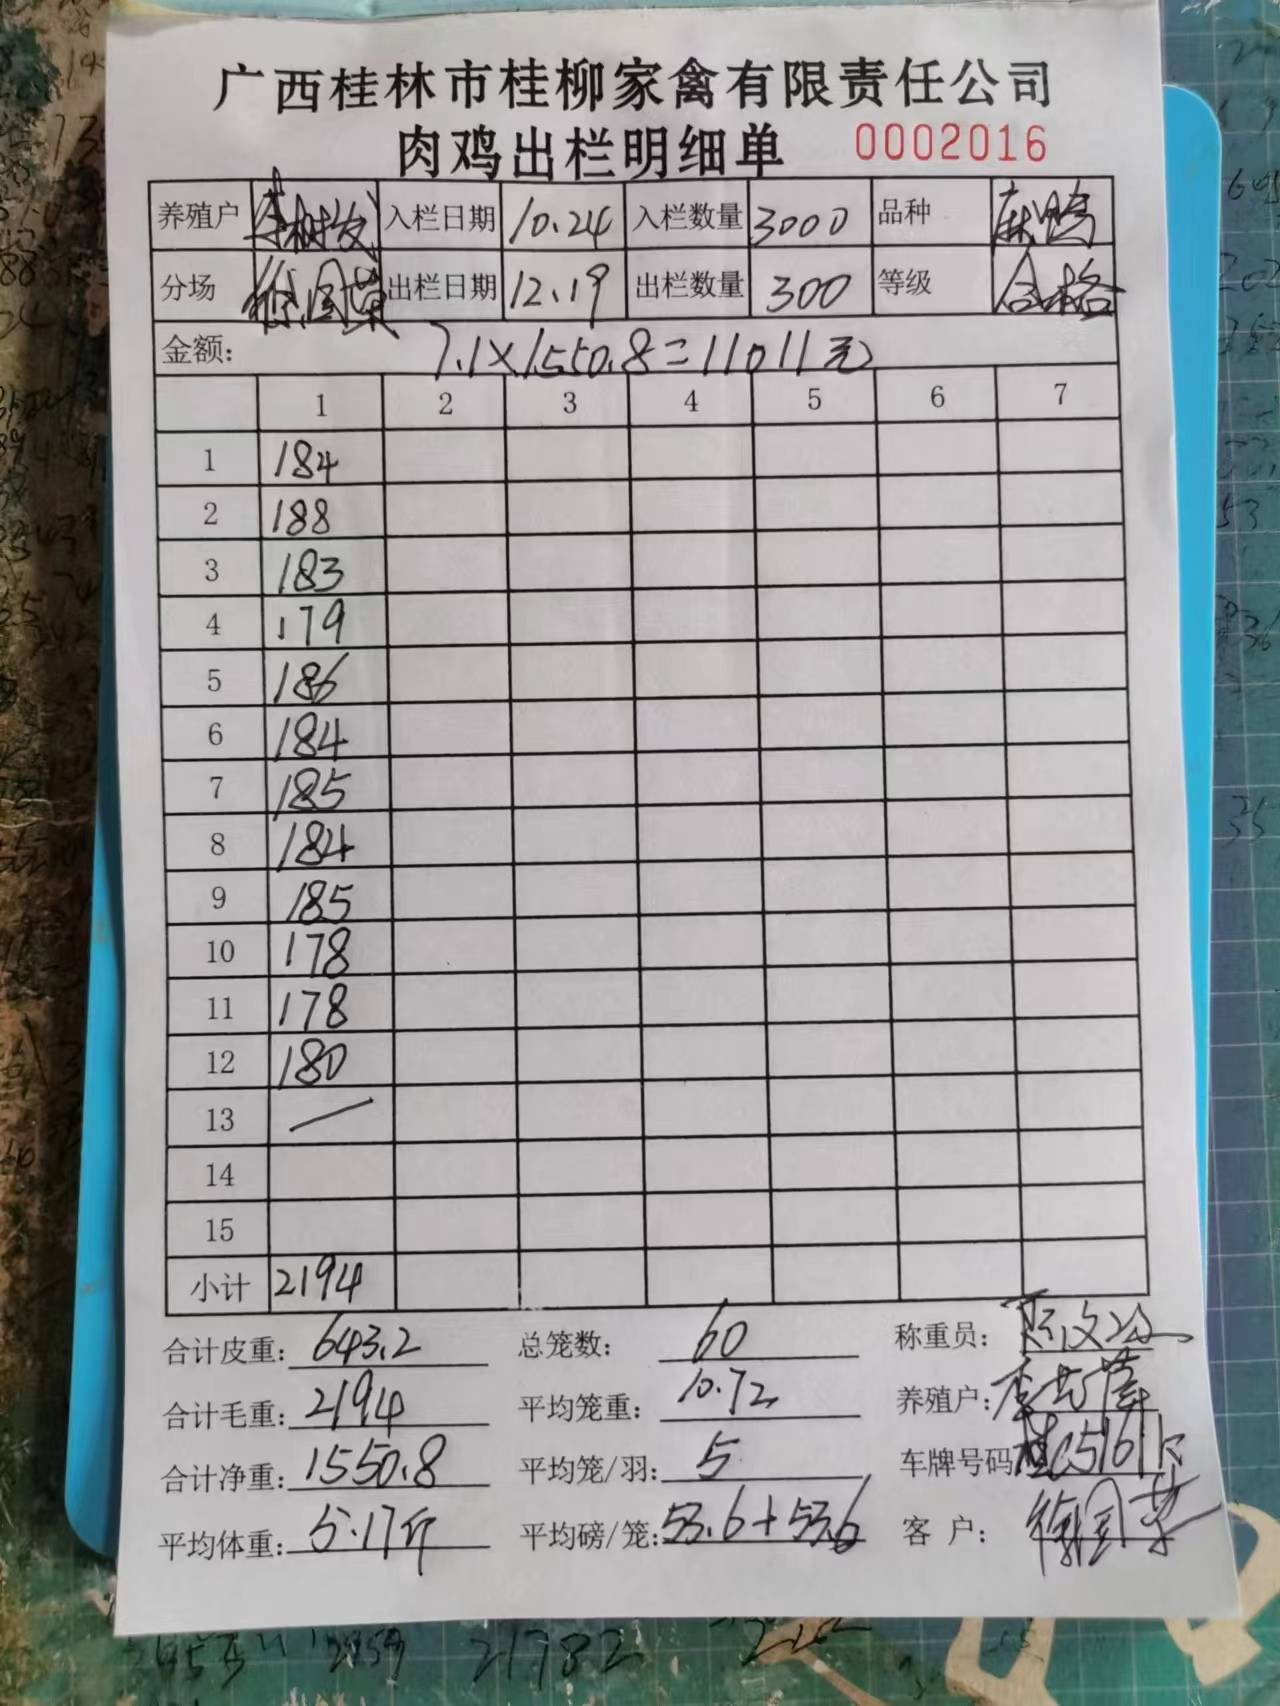 广西桂林市桂柳家禽有限责任公司
肉鸡出栏明细单 0002016
养殖户 李树发 入栏日期 10.24 入栏数量 3000 品种 麻鸭
分场 徐国荣 出栏日期 12.19 出栏数量 300 等级 合格
金额: 7.1×1550.8=11011元
1 2 3 4 5 6 7
1 184
2 188
3 183
4 179
5 186
6 184
7 185
8 184
9 185
10 178
11 178
12 180
13 —
14
15
小计 2194
合计皮重: 643.2 总笼数: 60 称重员:
合计毛重: 2194 平均笼重: 10.72 养殖户:
合计净重: 1550.8 平均笼/羽: 5 车牌号码
平均体重: 5.17斤 平均磅/笼: 53.6+53.6 客户: 徐国荣
21782